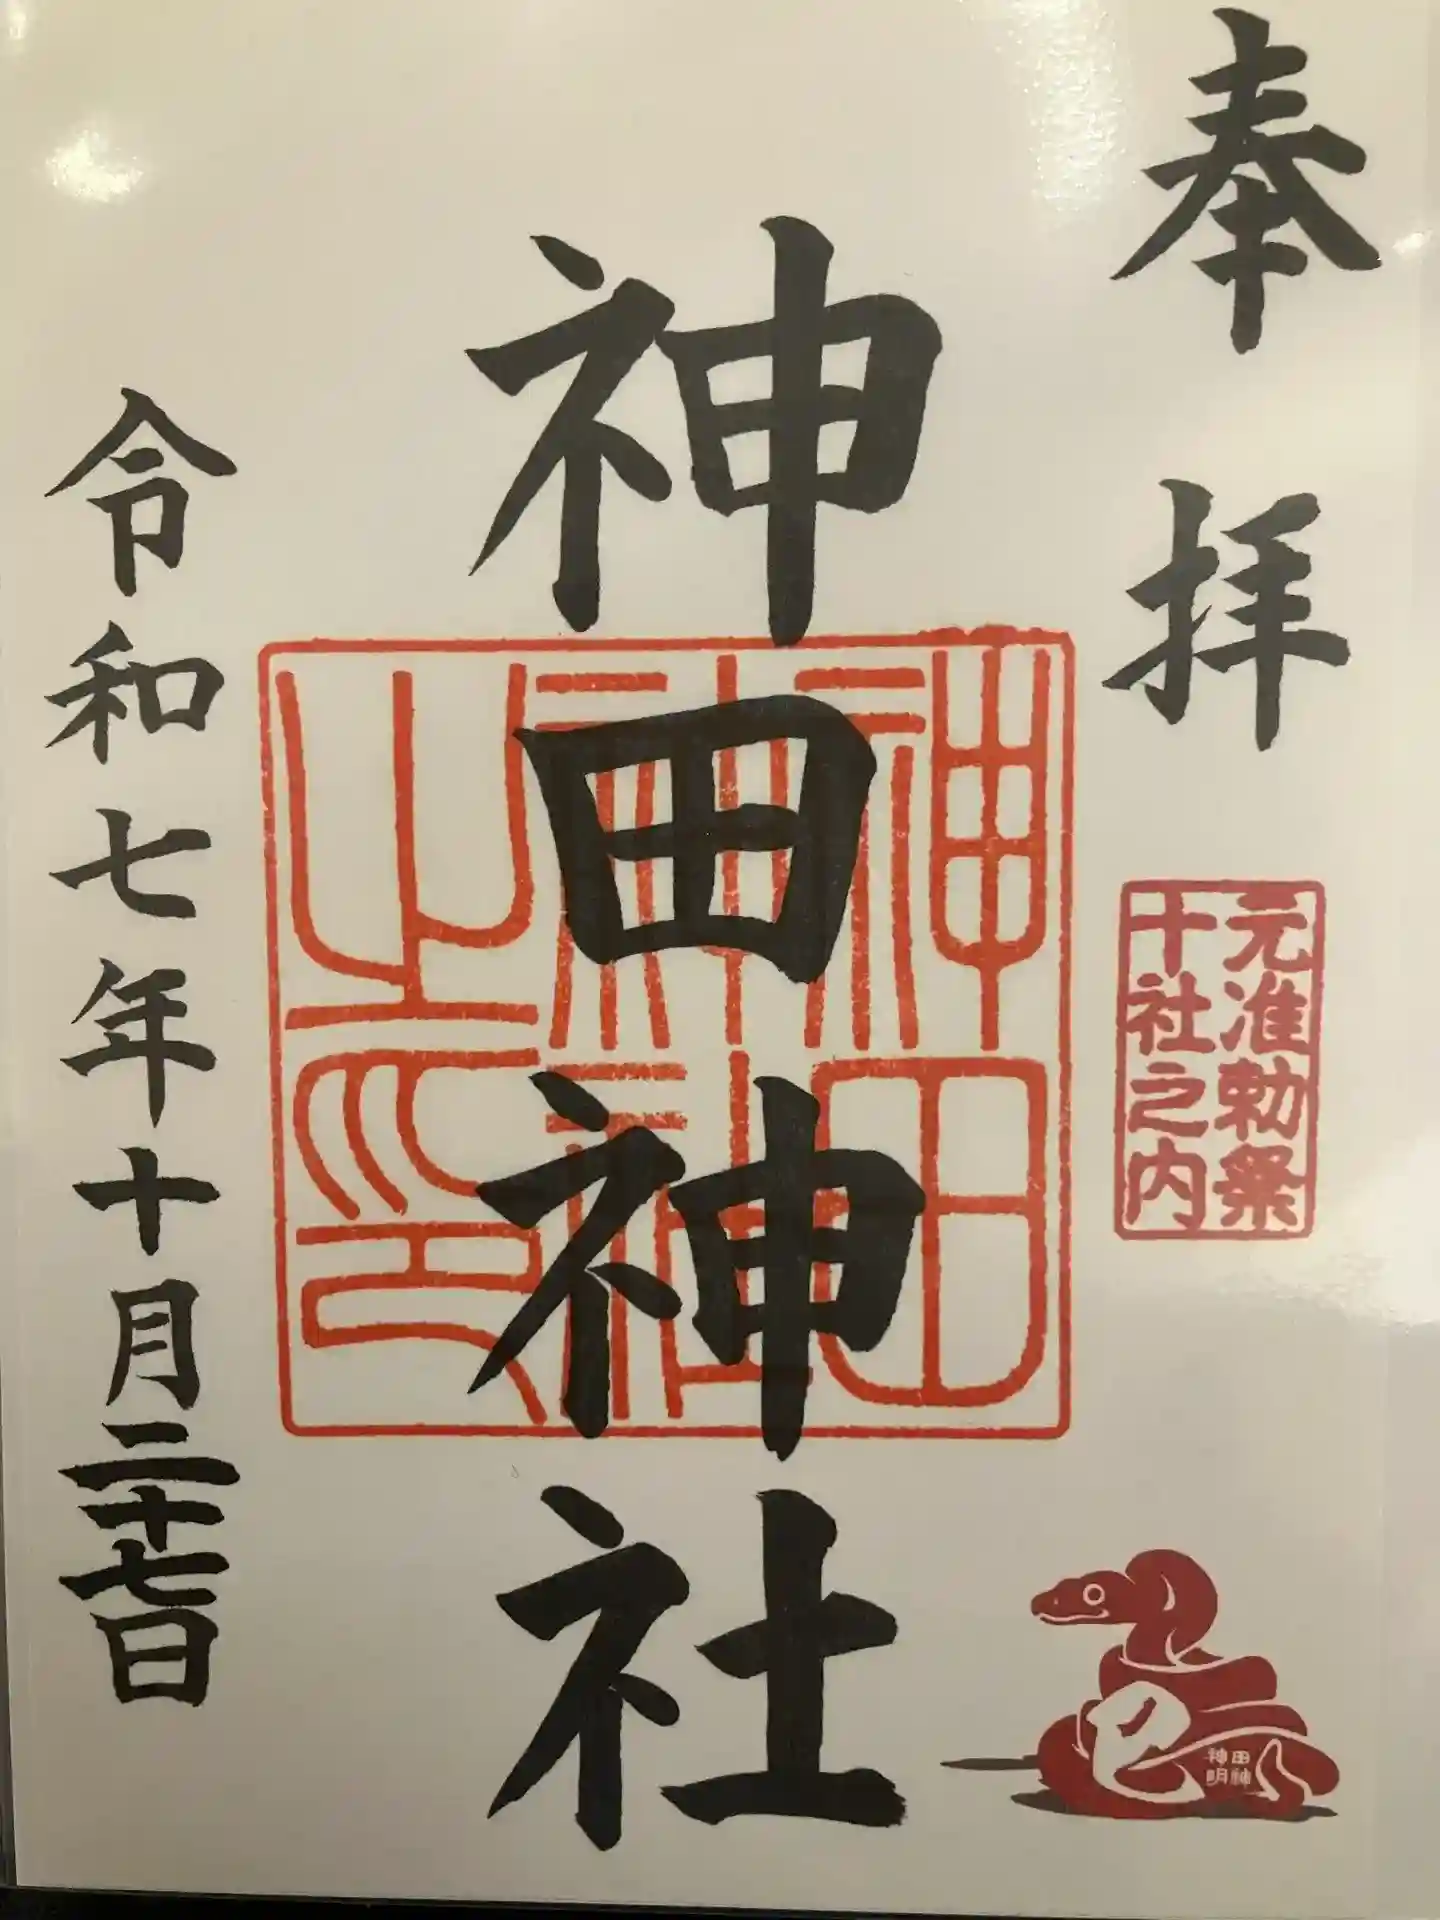 奉拝
元准勅祭
十社之内
神田神社
神田
神社
之印
令和七年十月二十七日
巳
田神
神明